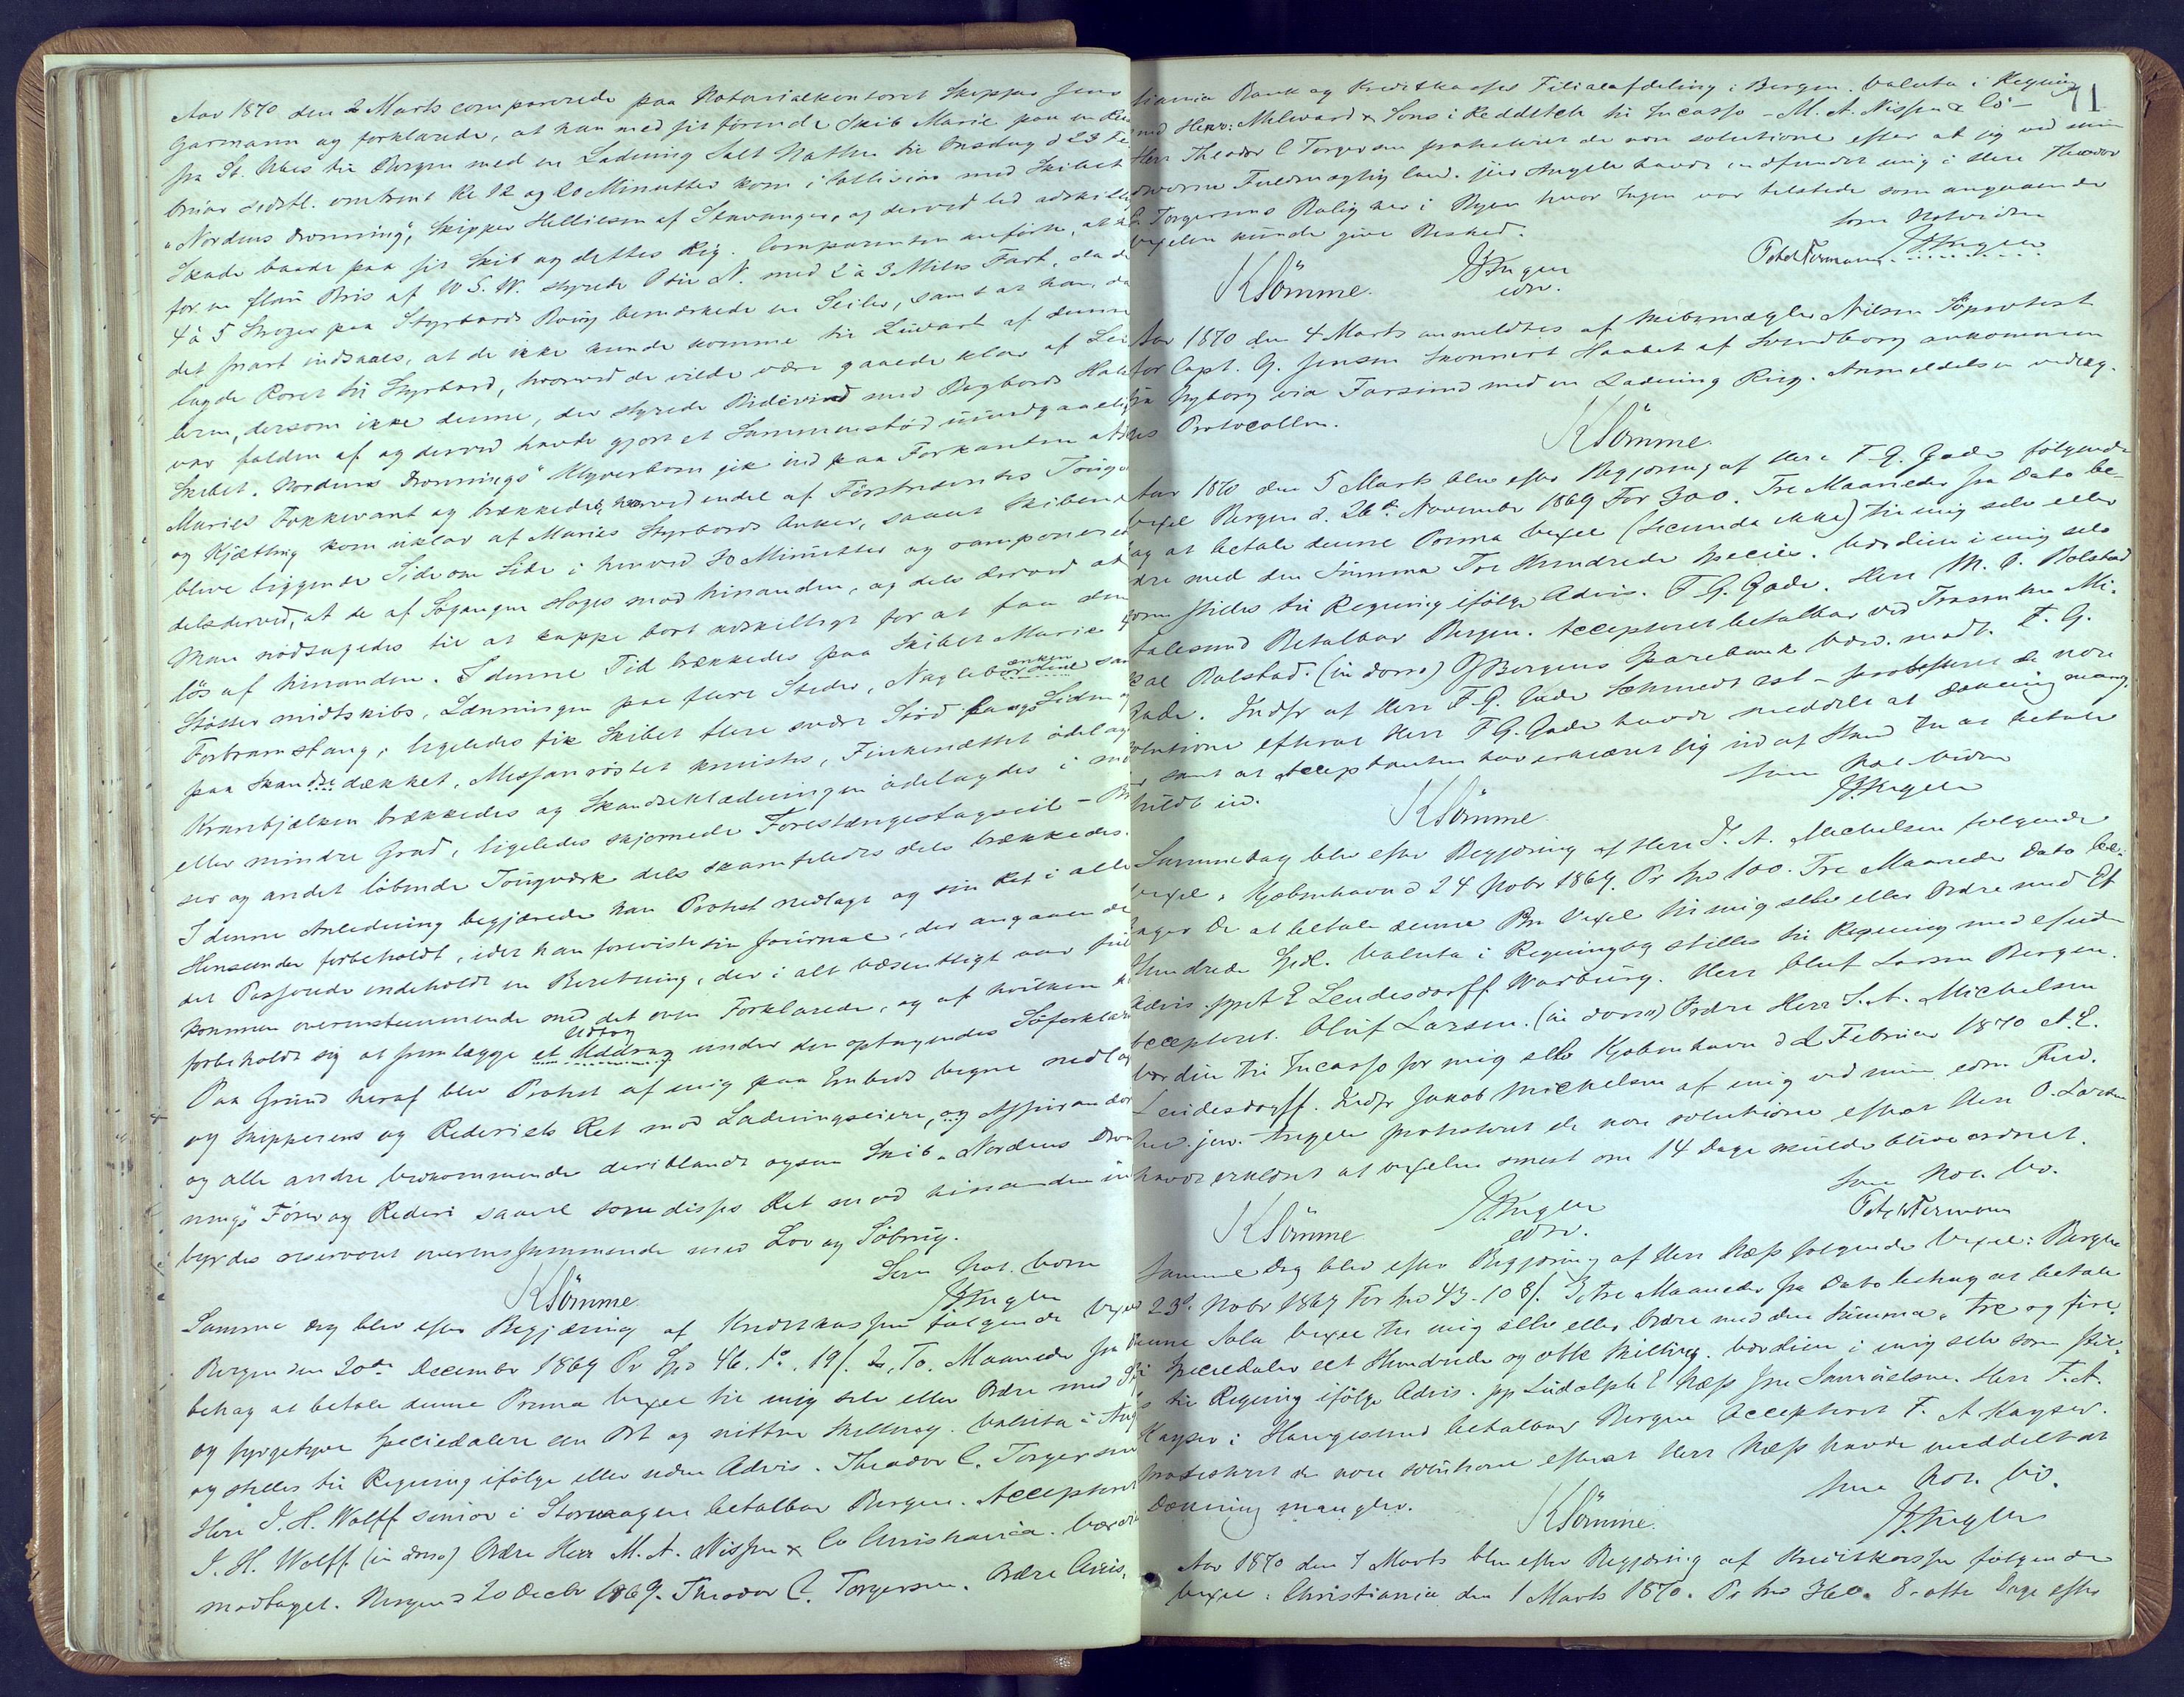 Aar 1870 den 2 Marts comparerede paa Notarialkontoret Skipper Jens
Garmann og forklarede, at han med sit förende Skib Marie paa en Rei
fra St. Ubes til Bergen med en Ladning Salt Natten til Onsdag d 23 Fe
bruar sidstl. omtrent Kl. 12 og 20 Minutter kom i Collision med Skibet
"Nordens Dronning", Skipper Helliesen af Stavanger, og derved led adskillig
Skade baade paa sit Skib og dettes Rig. Comparenten anförte, at
for en flau Bris af W S. W. styrede Ret N. med 2 à 3 Miles Fart, da de
4 à 5 Streger paa Styrbords Boug bemærkede en Seiler, samt at han, da
det snart indsaaes, at de ikke kunde komme til Luvart af denne
lagde Roret til Styrbord, hvorved de vilde være gaaede klar af Sei
leren, dersom ikke denne, der styrede Bidevind med Bagbords Hals
var falden af og derved havde gjort et Sammenstöd uundgaaeligt
Skibet "Nordens Dronnings" Klyverbom gik ind paa Forkanten af
Maries Fokkevant og brækkedes, hvorved endel af Förstnævntes Toug
og Kjætting kom uklar af Maries Styrbords Anker, samt Skibene
bleve liggende Side om Side i henved 30 Minutter og ramponered
delsderved, at de af Søgangen sloges mod hinanden, og dels derved at
Man nödsagedes til at kappe bort adskilligt for at faa dem
lös af hinanden. I denne Tid brækkedes paa Skibet Marie
Stötter midtskibs, Lænningen paa flere Steder, Naglebænken sam
Forbramstang; ligeledes fik Skibet flere svære Stöd langs Siden og
paa Skandsedækket, Messanröstet knustes, Finkenættet ödelagdes
Kranbjælken brækkedes og Skandseklædningen ödelagdes i mere
eller mindre Grad, ligeledes skjærede Forestængestagseil - Bra
ser og andet löbende Tougværk dels skamfiledes dels brækkedes.
I denne Anledning begjærede han Protest nedlagt og sin Ret i alle
Henseender forbeholdt, idet han foreviste sin Journal, der angaaende
det Passerede indeholdt en Beretning, der i alt væsentligt var ful
kommen overensstemmende med det oven Forklarede, og af hvilken
forbeholdt sig at fremlægge et Udtog under den optagendes Söforklar
Paa Grund heraf blev Protest af mig paa Embeds vegne nedlag
og Skipperens og Rederiets Ret mod Ladningseiere, og Assurandör
og alle andre vedkommende deriblandt ogsaa Skib "Nordens Dron
nings" Förer og Rederi saavel som disses Ret mod hinanden ind
byrdes reserveret overensstemmende med Lov og Söbrug.
Som Not. Vidne
KSömme JJEngelsen
Samme Dag blev efter Begjæring af Kreditkassen fölgende Vexel
Bergen den 20de December 1869 Pr Spd 46. 1o. 19 s. 2, To. Maaneder fra
behag at betale denne Prima Vexel til mig selv eller Ordre med
og fyrgetyve Speciedalere en Ort og nitten Skilling. Valuta i
og stilles til Regning ifölge eller uden Advis. Theodor C. Torgersen
Herr J. H. Wolff senior i Storvaagen betalbar Bergen. Accepteret
J. H. Wolff (in dorso) Ordre Herr M. A. Nissen & Co Christiania. Værdi
modtaget. Bergen d 20 Decbr 1869. Theodor C. Torgersen. Ordre Chris.
71
tiania Bank og Kreditkasses Filialafdeling i Bergen. Valuta i Regning
med Herr: Milward & Sons i Redditch til Incasso - M. A. Nissen & Co -
Herr Theodor C Torgersen protesteret de non solutione efter at jeg ved min
edsvorne Fuldmægtig cand. jur. Engelsen havde indfundet mig i Herr Theodor
C. Torgersens Bolig her i Byen hvor Ingen var tilstede som angaaende
Vexelen kunde give Besked. Som Notvidne
KSömme. JEngelsen Peter Termann
edsv.
Aar 1870 den 4 Marts anmeldtes af Skibsmægler Nilsen Söprotest
for Capt. G. Jensen Skonnert Haabet af Svendborg ankommen
fra Nyborg via Farsund med en Ladning Rug. Anmeldelsen vedlæg-
ges Protocollen.
KSömme
Aar 1870 den 5 Marts blev efter Begjæring af Herr F. G. Gade följende
Vexel Bergen d. 26de November 1869 For 300. Tre Maaneder fra Dato be-
hag at betale denne Prima Vexel (Secunda ikke) til mig selv eller
Ordre med den Summa Tre Hundrede Species. Værdien i mig selv
som stilles til Regning ifölge Advis. F. G. Gade. Herr M. O. Rolstad
Aalesund Betalbar Bergen. Accepteret betalbar ved Trassenten Mi-
kal Rolstad. (in dorso) Bergens Sparebank Værd. modt. F. G.
Gade. Indfr af Herr F. G. Gade Schmedt cst - protesteret de non
solutione efterat Herr F G. Gade havde meddelt at Dækning mang-
ler samt at Acceptanten har erklæret sig ud af Stand til at betale
fuldt ud. Som Not. Vidne
KSömme JEngelsen
Samme Dag blev efter Begjæring af Herr J. A. Michelsen fölgende
Vexel. Kjøbenhavn d 24 Nobr 1869. Pr Spd 100. Tre Maaneder Dato be-
hager De at betale denne Pm Vexel til mig selv eller Ordre med Et
Hundrede Spdl. Valuta i Regning og stilles til Regning med eller uden
Advis. ppa E Lendesdorff Warburg. Herr Oluf Larsen Bergen.
Accepteret. Oluf Larsen. (in dorso) Ordre Herr J. A. Michelsen
Værdien til Incasso for mig selv Kjøbenhavn d 2 Februar 1870 A. E.
Lendesdorff. Indfr Jakob Michelsen af mig ved min edsv. Fuld.
cand. jur. Engelsen protesteret de non solutione efterat Herr O. Larsen
havde erklæret at Vexelen senest om 14 Dage skulde blive ordnet.
Som Not. Vid.
KSömme JEngelsen Peter Termann
edsv.
Samme Dag blev efter Begjæring af Herr Næss fölgende Vexel: Bergen
23d. Nobr 1869 For Spd 43. 108 s. 3, tre Maaneder fra Dato behag at betale
denne Sola Vexel til mig selv eller Ordre med den Summa "tre og fire
ti Speciedaler et Hundrede og otte Skilling. Værdien i mig selv som stil-
les til Regning ifölge Advis. pp Ludolph E Næss Jne Samuelsen. Herr F. A.
Kayser i Haugesund betalbar Bergen Accepteret F. A Kayser.
protesteret de non solutione efterat Herr Næss havde meddelt at
Dækning mangler. Som Not. Vid.
KSömme. JEngelsen
Aar 1870 den 7 Marts blev efter Begjæring af Kreditkassen fölgende
Vexel: Christiania den 1 Marts 1870. Pr Spd 360. 8 - otte Dage efter